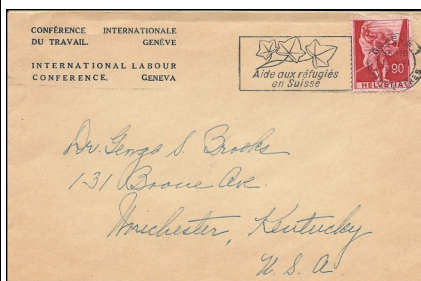 CONFÉRENCE INTERNATIONALE
DU TRAVAIL. GENÈVE
INTERNATIONAL LABOUR
CONFERENCE. GENEVA
Aide aux réfugiés
en Suisse
90
HELVETIA
Dr. George S. Brooks
131 Boone Ave.
Winchester, Kentucky
U.S.A.